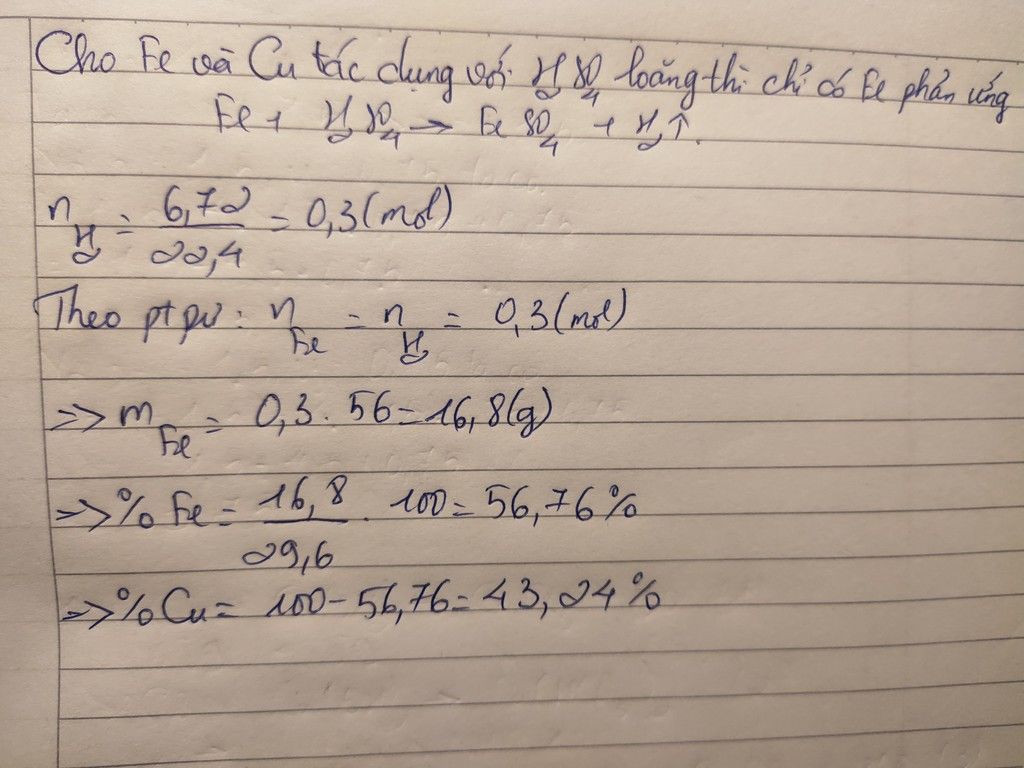 Cho Fe và Cu tác dụng với H₂SO₄ loãng thì chỉ có Fe phản ứng
Fe + H₂SO₄ → FeSO₄ + H₂↑.
n_H₂ = 6,72/22,4 = 0,3 (mol)
Theo ptpư: n_Fe = n_H₂ = 0,3 (mol)
=> m_Fe = 0,3 . 56 = 16,8 (g)
=> % Fe = 16,8/29,6 . 100 = 56,76 %
=> % Cu = 100 - 56,76 = 43,24 %